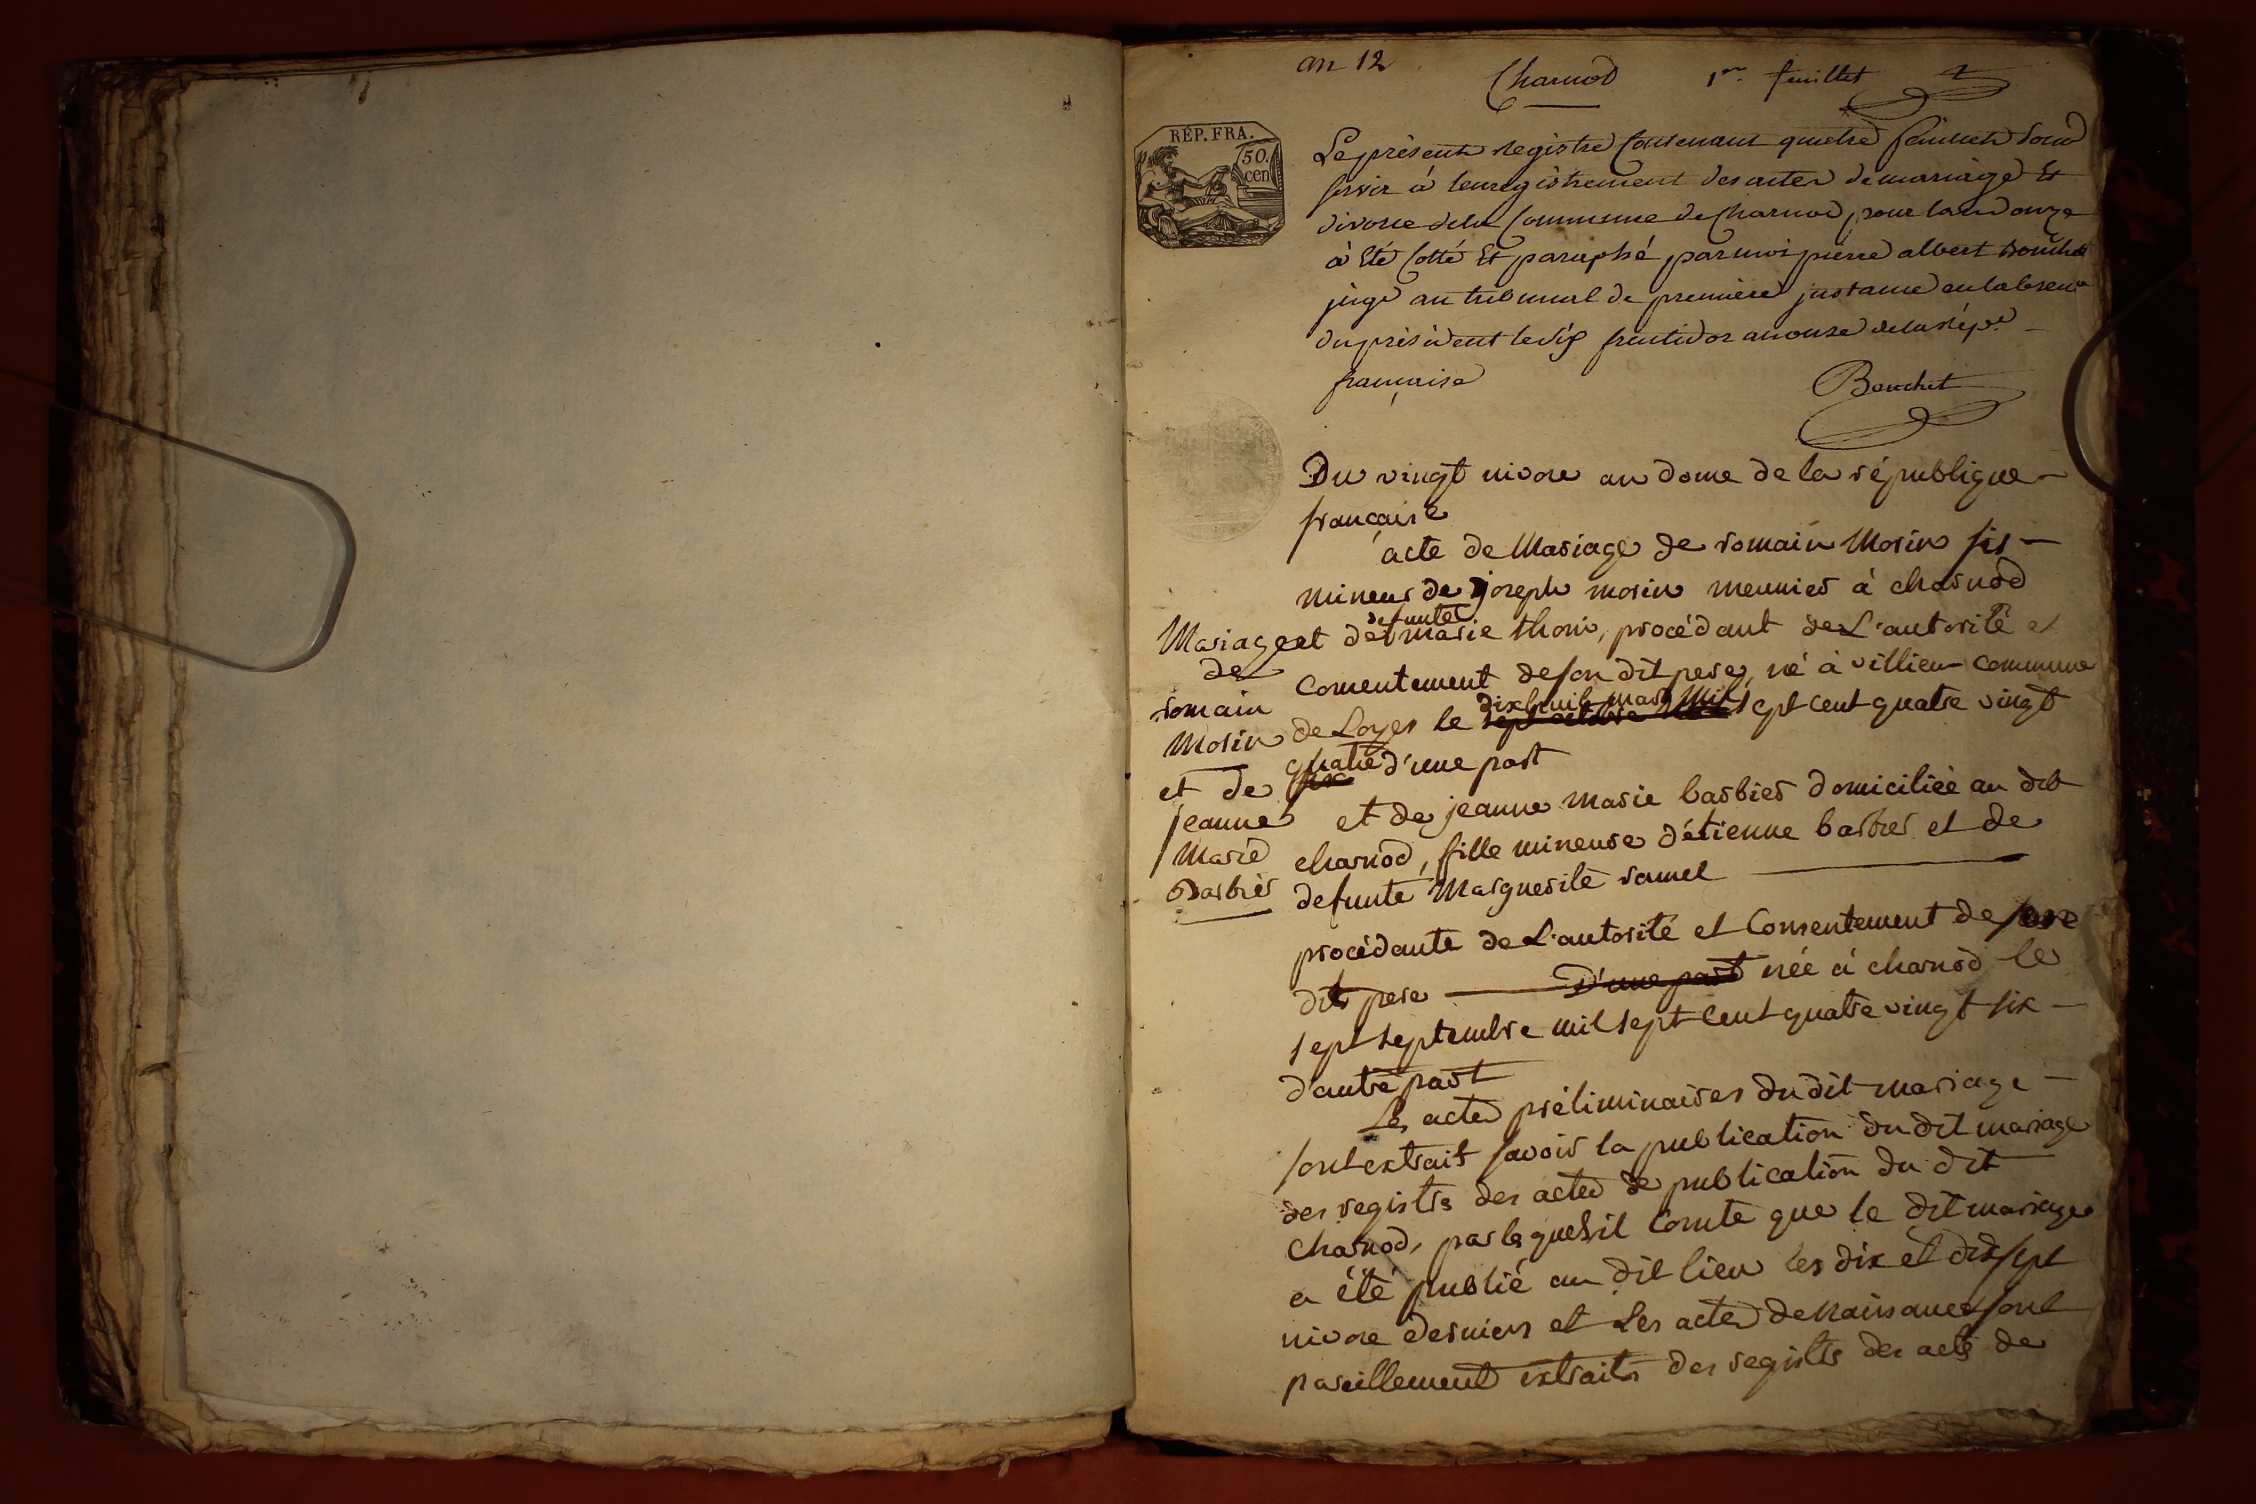 an 12
Charnod 1er feuillet
RÉP. FRA.
50.
cen
Le présent registre contenant quatre feuillets
servir à l'enregistrement des actes de mariage Et
divorce de la Commune de Charnod, pour l'an douze
à Eté Cotté Et paraphé par moi pierre albert Bouchet
juge au tribunal de première jnstance en labsence
du président le dix fructidor an onze de la rép.e
française
Bouchet
Du vingt nivose an douze de la république
française
acte de Mariage de romain Morin fils
mineur de joseph morin meunier à charnod
defunte
et de marie thorin, procédant de L'autorité et
consentement de son dit pere, né à villieu commune
dixhuit mars mil
de Loyes le sept octobre sept cent quatre vingt
quatre
six d'une part
Mariage
de
romain
Morin
et de
jeanne
Marie
Barbier
et de jeanne Marie barbier domiciliée au dit
charnod, fille mineure d'étienne barbier et de
defunte Marguerite ramel
procédante de L'autorité et Consentement de son
dit pere D'une part née à charnod le
sept septembre mil sept cent quatre vingt six
d'autre part
Les actes préliminaires du dit mariage
sont extrait savoir la publication du dit mariage
des registre des actes de publication du dit
Charnod, par lequel il conste que le dit mariage
a été publié au dit lieu les dix et dix sept
nivose derniers et Les actes de naissances sont
pareillement extraits des registre des acte de